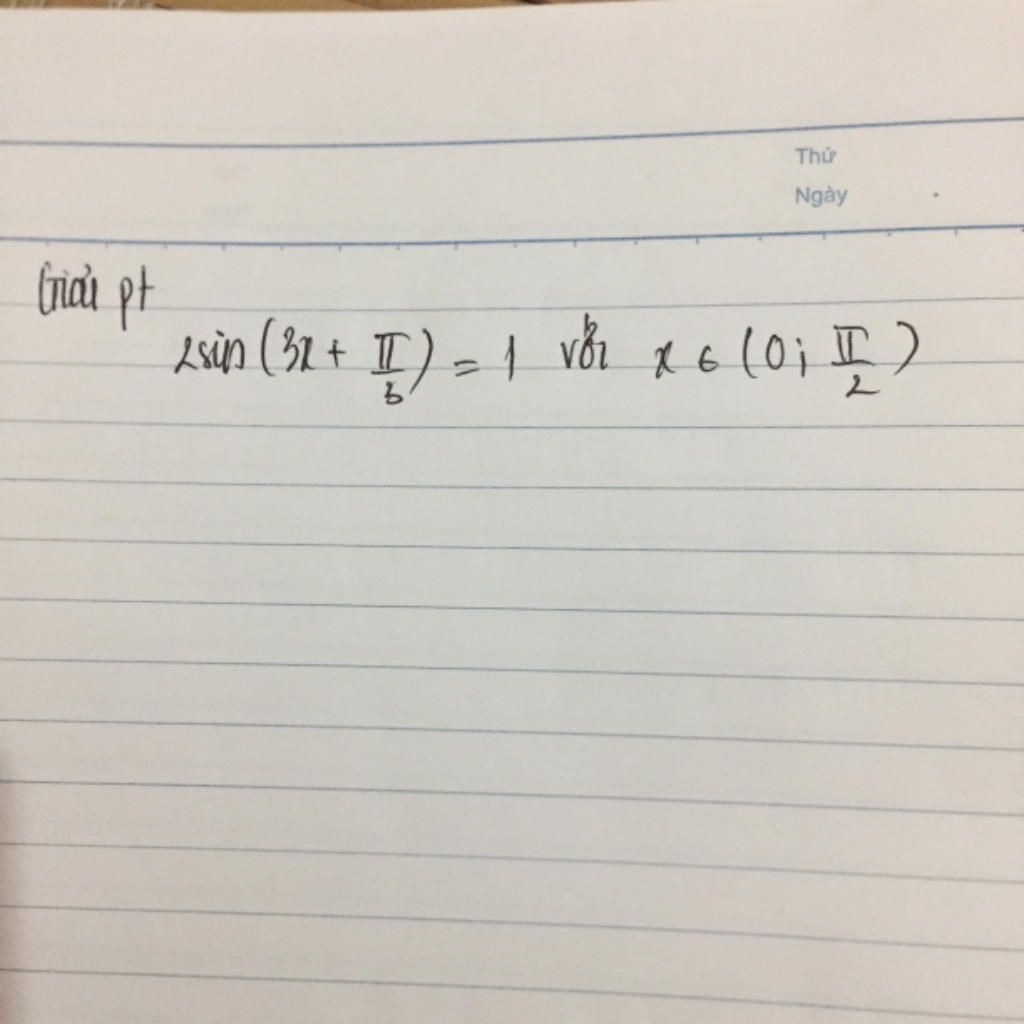 Thứ
Ngày
Giải pt
2sin(3x + π/3) = 1 với x ∈ (0; π/2)